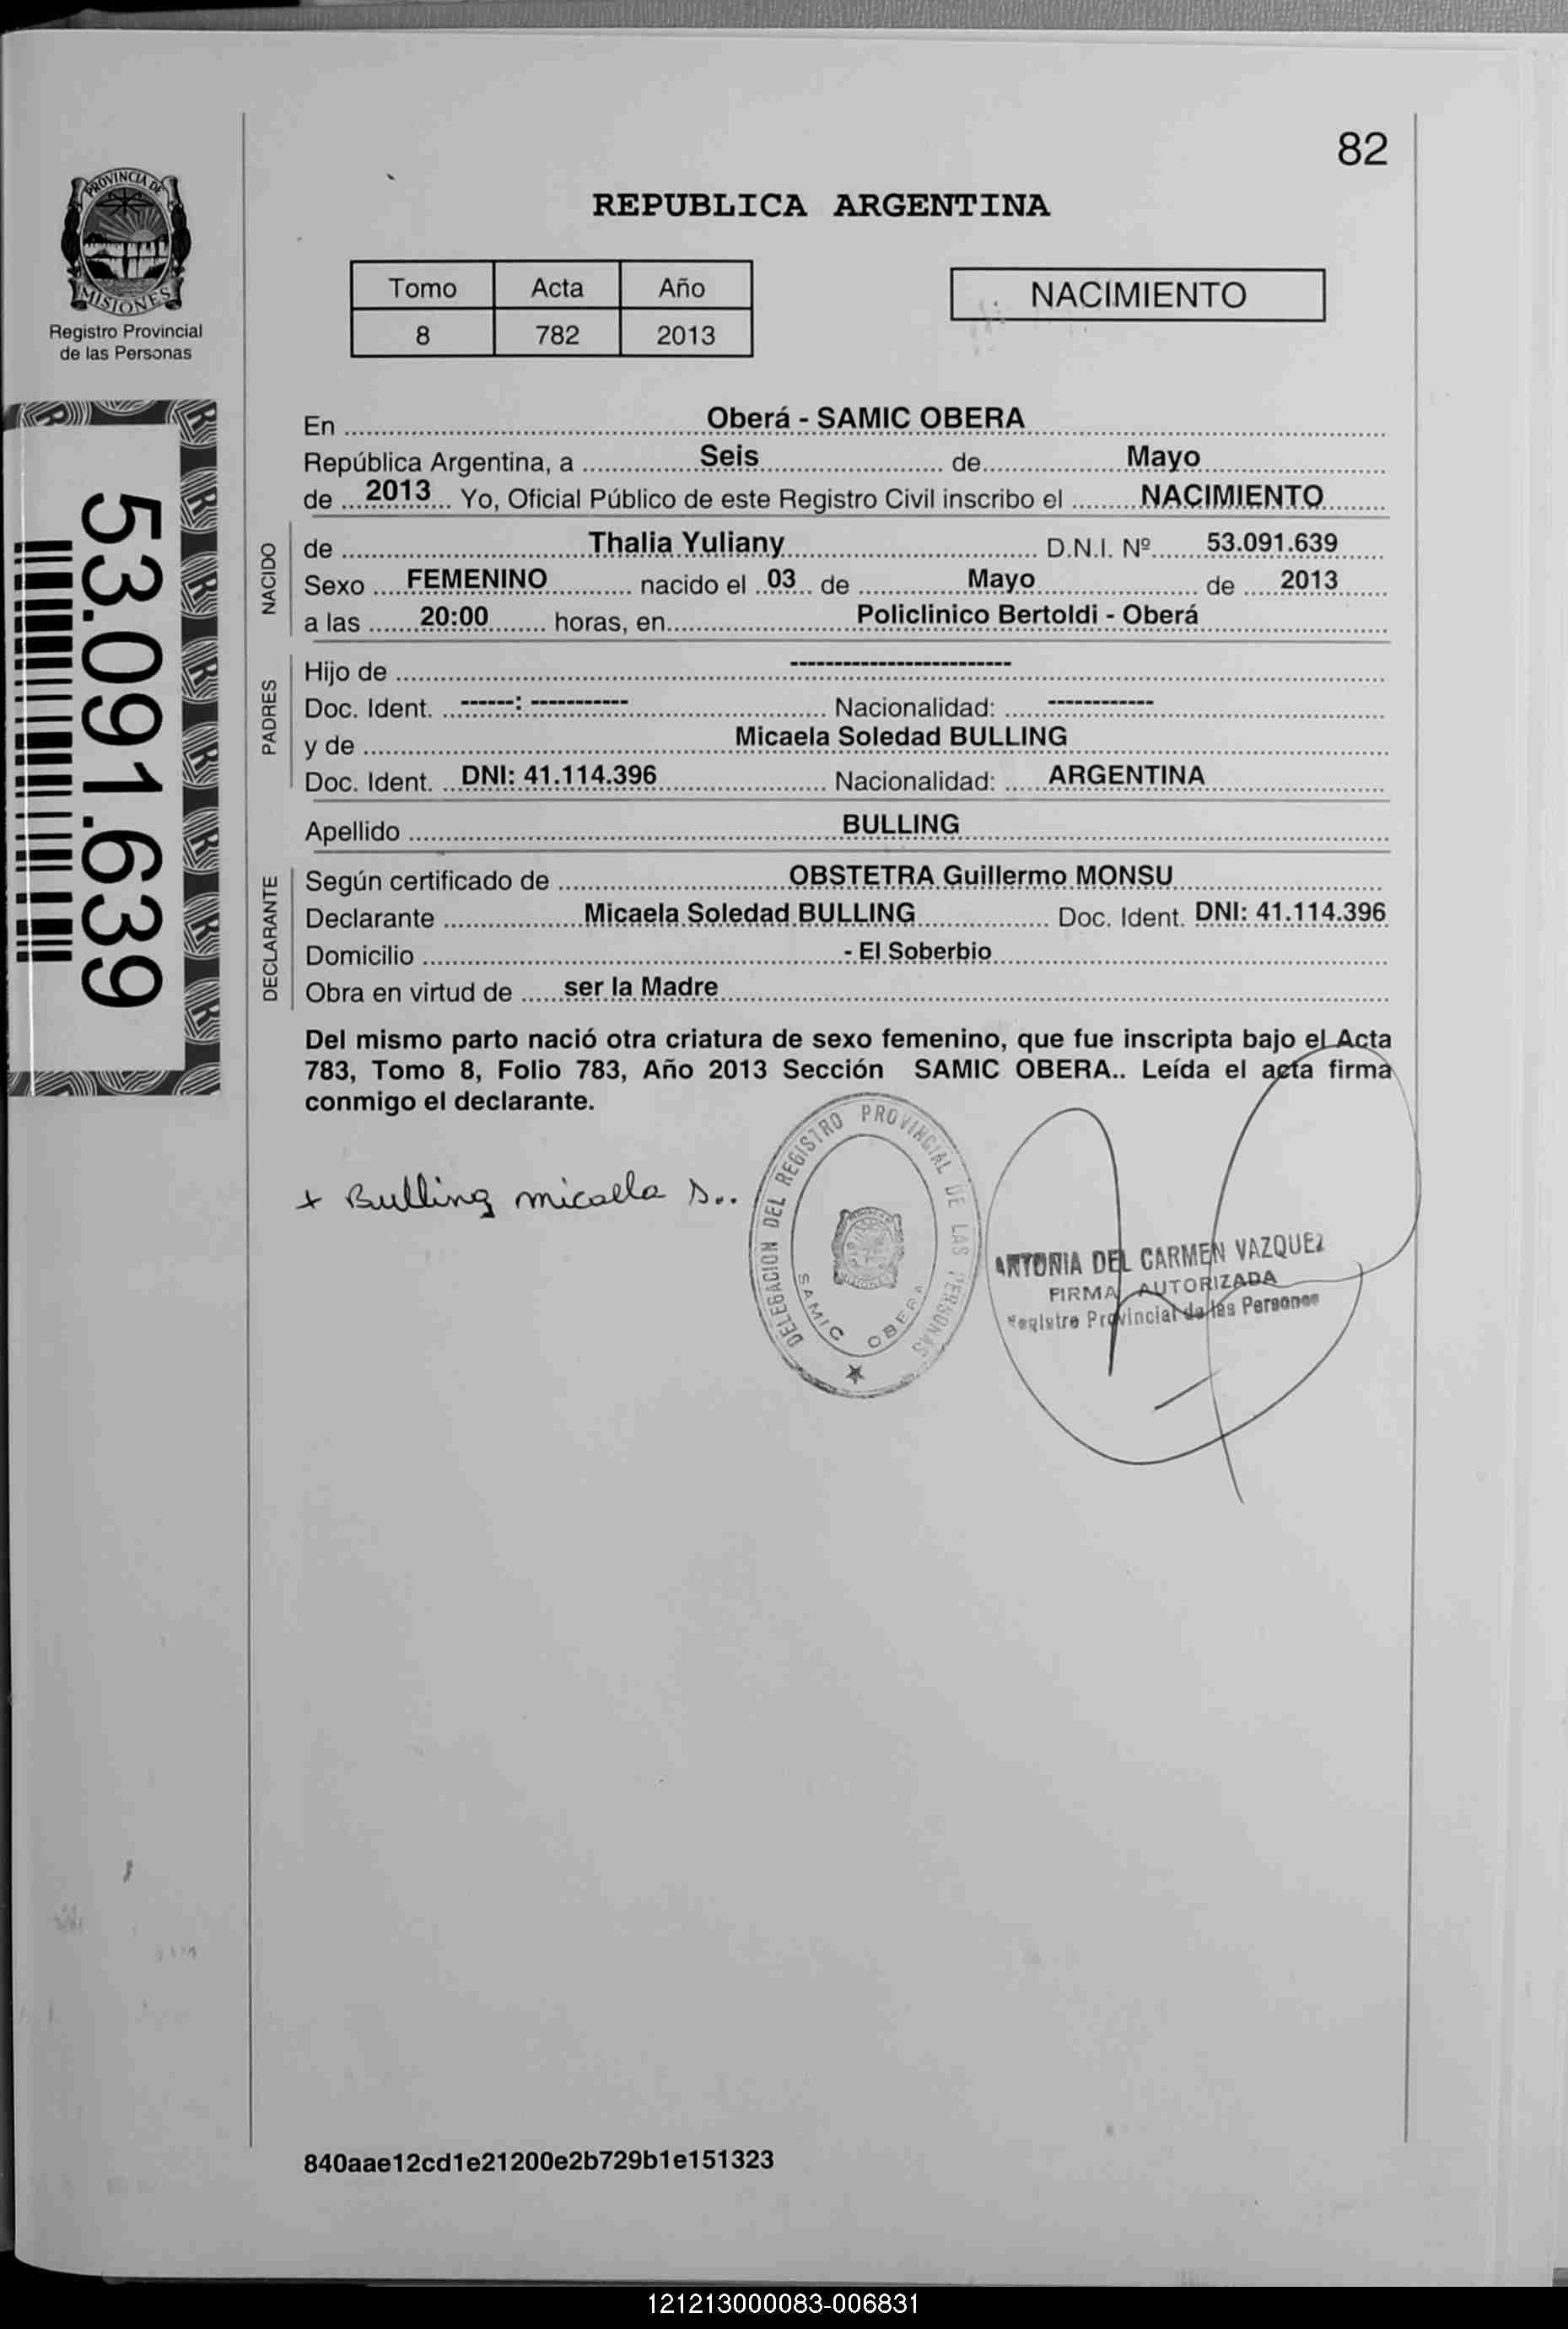 82
PROVINCIA DE
MISIONES
Registro Provincial
de las Personas
REPUBLICA ARGENTINA
Tomo Acta Año
8 782 2013
NACIMIENTO
53.091.639
En Oberá - SAMIC OBERA
República Argentina, a Seis de Mayo
de 2013 Yo, Oficial Público de este Registro Civil inscribo el NACIMIENTO
NACIDO
de Thalia Yuliany D.N.I. Nº 53.091.639
Sexo FEMENINO nacido el 03 de Mayo de 2013
a las 20:00 horas, en Policlinico Bertoldi - Oberá
PADRES
Hijo de -------------------------
Doc. Ident. ------: ----------- Nacionalidad: ------------
y de Micaela Soledad BULLING
Doc. Ident. DNI: 41.114.396 Nacionalidad: ARGENTINA
Apellido BULLING
DECLARANTE
Según certificado de OBSTETRA Guillermo MONSU
Declarante Micaela Soledad BULLING Doc. Ident. DNI: 41.114.396
Domicilio - El Soberbio
Obra en virtud de ser la Madre
Del mismo parto nació otra criatura de sexo femenino, que fue inscripta bajo el Acta
783, Tomo 8, Folio 783, Año 2013 Sección SAMIC OBERA.. Leída el acta firma
conmigo el declarante.
+ Bulling micaela S..
DELEGACION DEL REGISTRO PROVINCIAL DE LAS PERSONAS
SAMIC OBERA
ANTONIA DEL CARMEN VAZQUEZ
FIRMA AUTORIZADA
Registro Provincial de las Personas
840aae12cd1e21200e2b729b1e151323
121213000083-006831